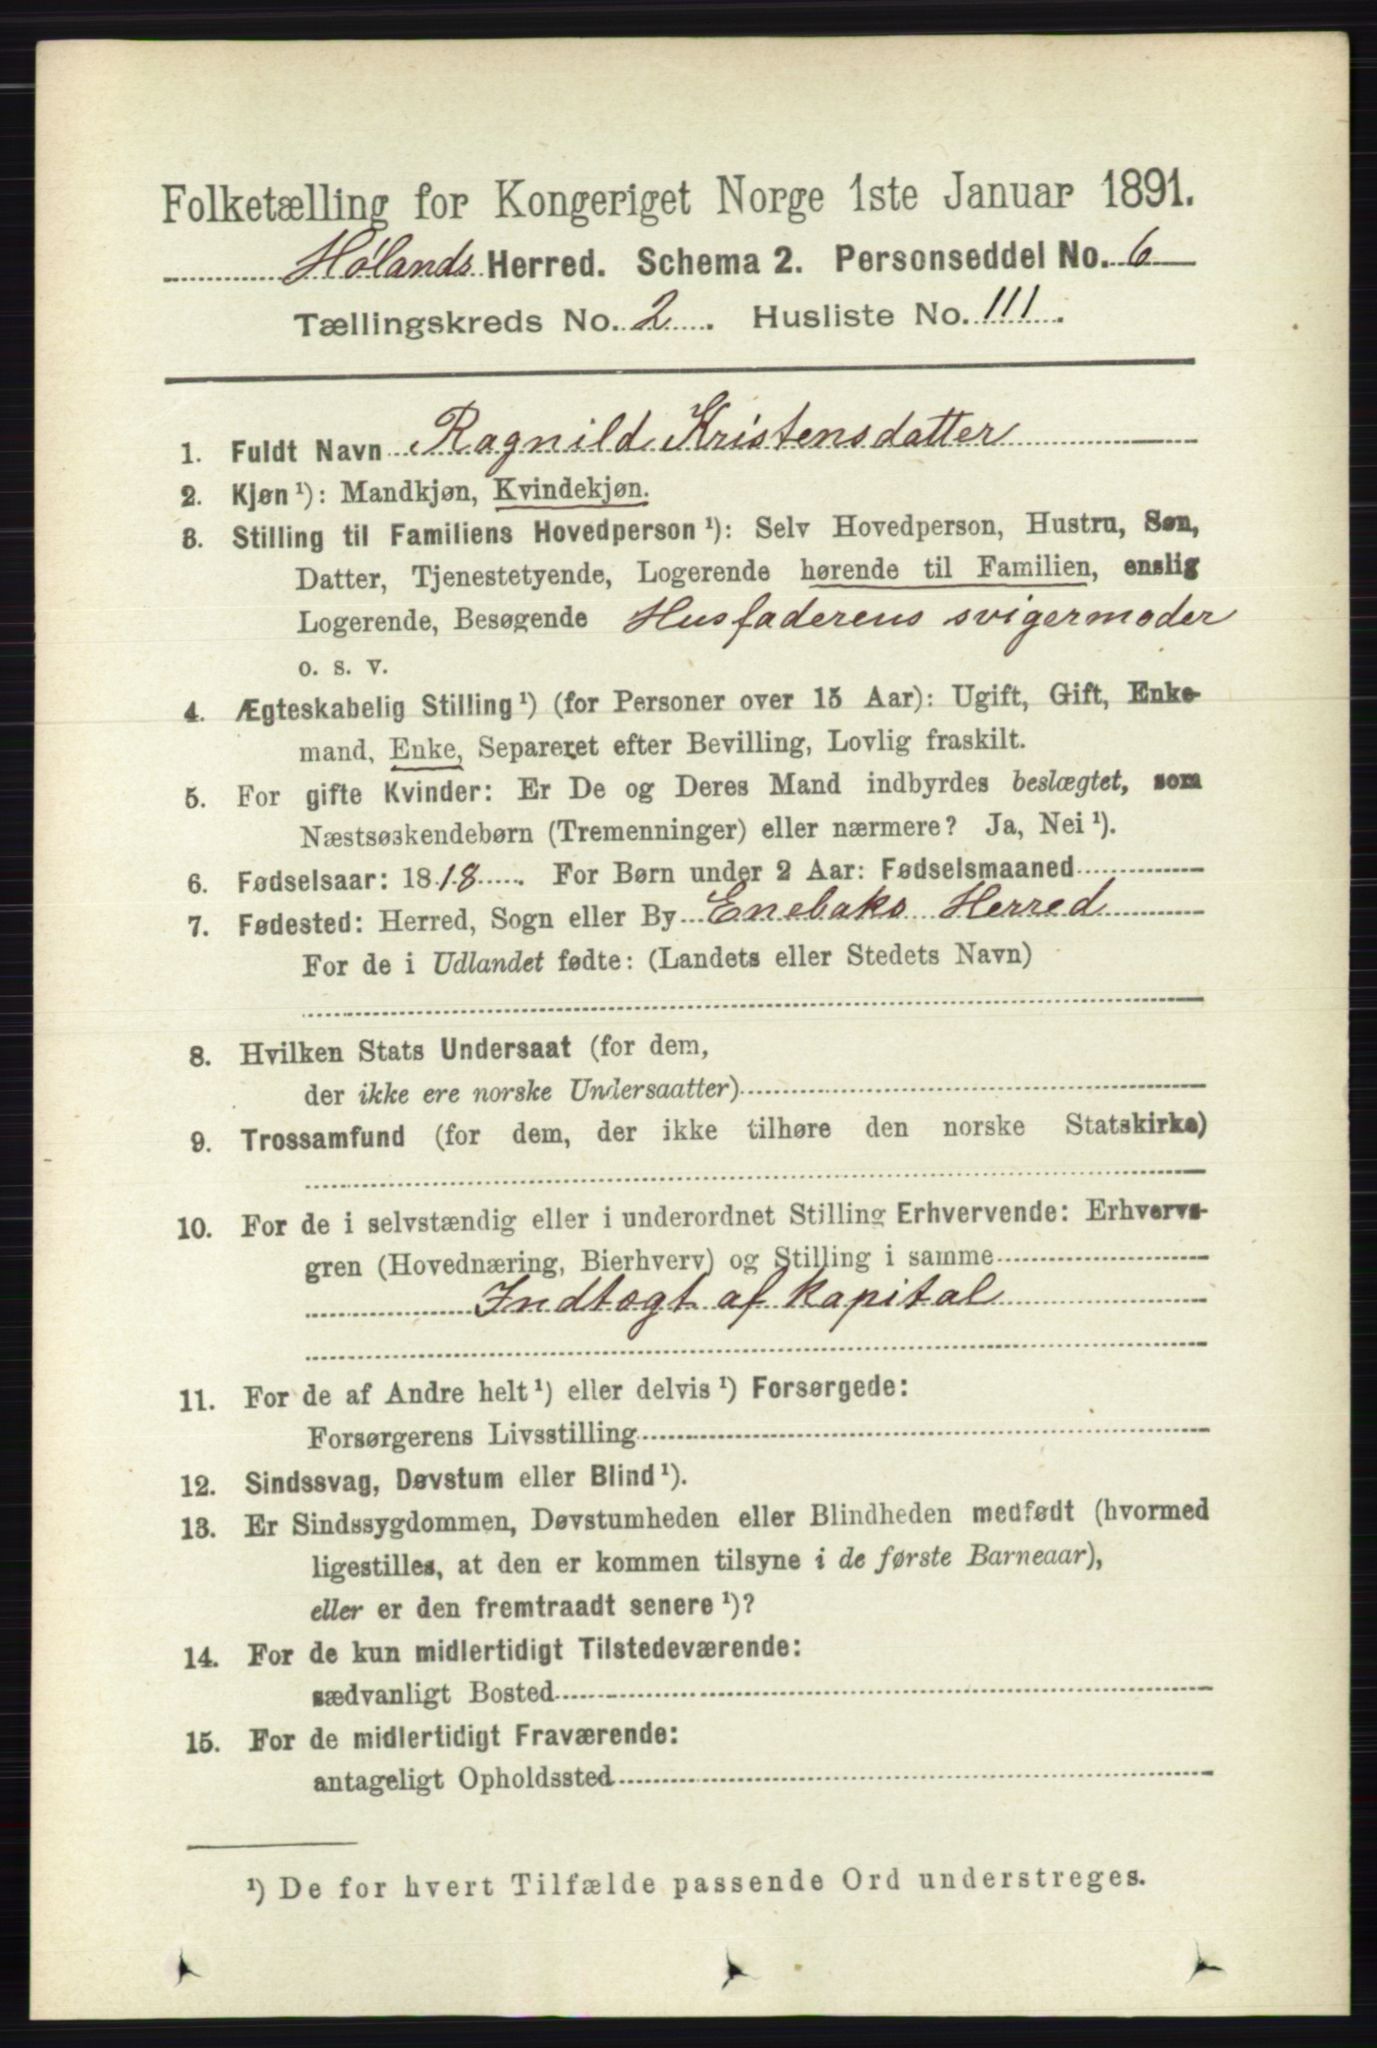 Folketælling for Kongeriget Norge 1ste Januar 1891.
Hølands Herred. Schema 2. Personseddel No. 6
Tællingskreds No. 2. Husliste No. 111.
1. Fuldt Navn Ragnild Kristensdatter
2. Kjøn¹): Mandkjøn, Kvindekjøn.
3. Stilling til Familiens Hovedperson¹): Selv Hovedperson, Hustru, Søn,
Datter, Tjenestetyende, Logerende hørende til Familien, enslig
Logerende, Besøgende Husfaderens svigermoder
o. s. v.
4. Ægteskabelig Stilling¹) (for Personer over 15 Aar): Ugift, Gift, Enke-
mand, Enke, Separeret efter Bevilling, Lovlig fraskilt.
5. For gifte Kvinder: Er De og Deres Mand indbyrdes beslægtet, som
Næstsøskendebørn (Tremenninger) eller nærmere? Ja, Nei¹).
6. Fødselsaar: 1818. For Børn under 2 Aar: Fødselsmaaned
7. Fødested: Herred, Sogn eller By Enebaks Herred
For de i Udlandet fødte: (Landets eller Stedets Navn)
8. Hvilken Stats Undersaat (for dem,
der ikke ere norske Undersaatter)
9. Trossamfund (for dem, der ikke tilhøre den norske Statskirke)
10. For de i selvstændig eller i underordnet Stilling Erhvervende: Erhvervs-
gren (Hovednæring, Bierhverv) og Stilling i samme
Indtægt af kapital
11. For de af Andre helt¹) eller delvis¹) Forsørgede:
Forsørgerens Livsstilling
12. Sindssvag, Døvstum eller Blind¹).
13. Er Sindssygdommen, Døvstumheden eller Blindheden medfødt (hvormed
ligestilles, at den er kommen tilsyne i de første Barneaar),
eller er den fremtraadt senere¹)?
14. For de kun midlertidigt Tilstedeværende:
sædvanligt Bosted
15. For de midlertidigt Fraværende:
antageligt Opholdssted
¹) De for hvert Tilfælde passende Ord understreges.